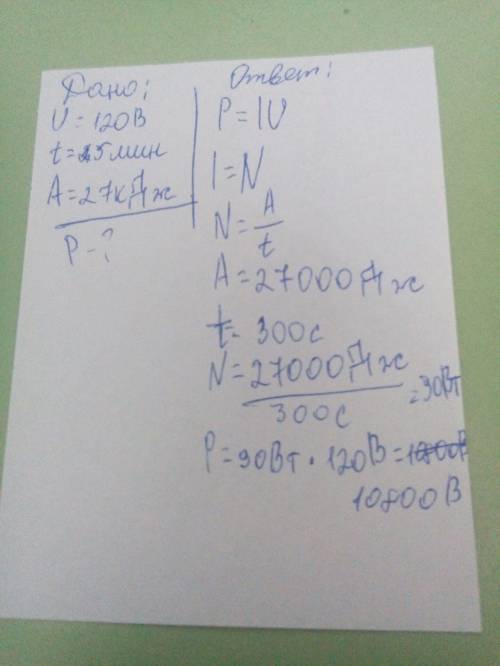 Дано:
U = 120В
t = 5 мин
A = 27кДж
P - ?
Ответ:
P = IU
I = N
N = A/t
A = 27000 Дж
t = 300с
N = 27000 Дж / 300с = 90Вт
P = 90Вт · 120В =
10800 В